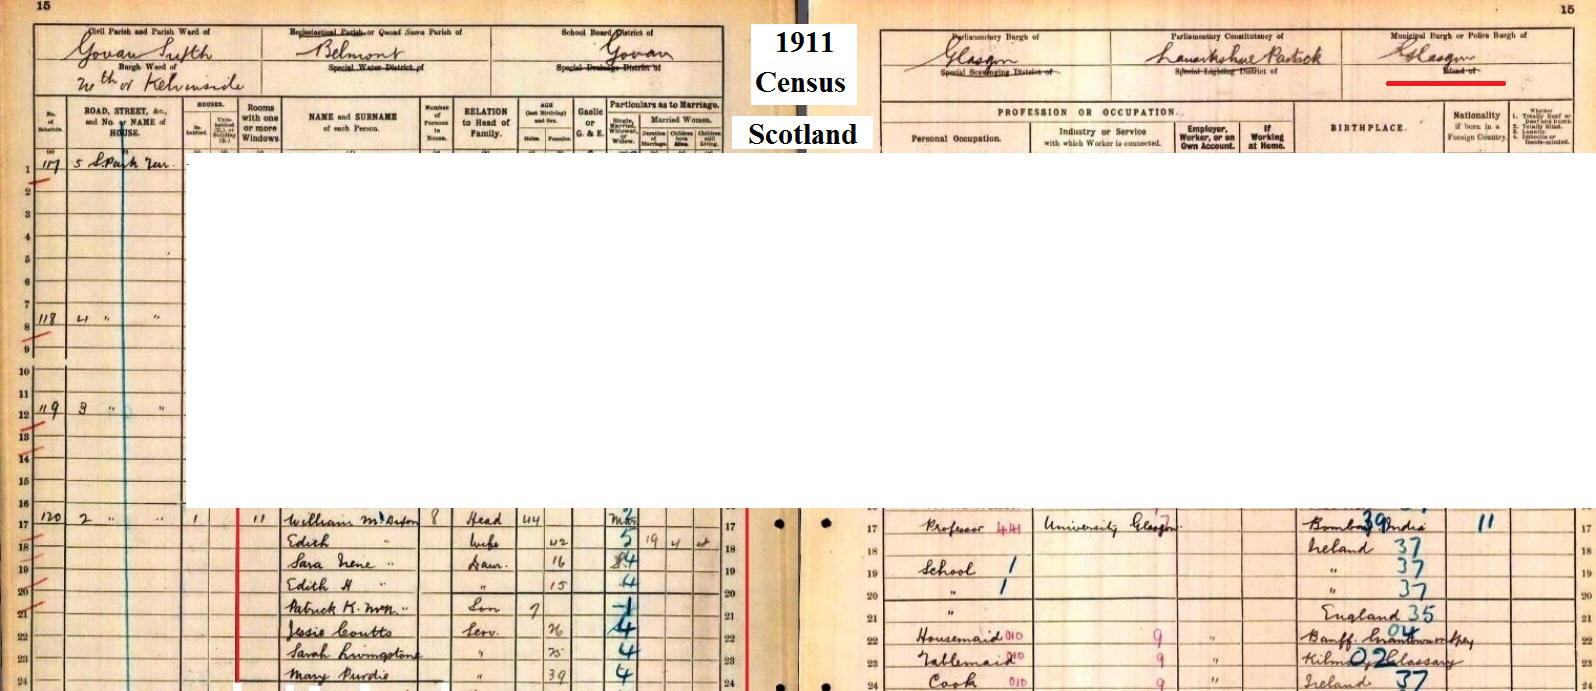 15
15
1911
Census
Scotland
Civil Parish and Parish Ward of
Govan
Burgh Ward of
Kelvinside
Ecclesiastical Parish or Quoad Sacra Parish of
Belmont
Special Water District of
School Board District of
Govan
Special Drainage District of
Parliamentary Burgh of
Glasgow
Special Scavenging District of
Parliamentary Constituency of
Lanarkshire Partick
Special Lighting District of
Municipal Burgh or Police Burgh of
Glasgow
Island of
No. of Schedule.
ROAD, STREET, &c., and No. or NAME of HOUSE.
HOUSES.
Inhabited
Rooms with one or more Windows
NAME and SURNAME of each Person.
Number of Persons in House.
RELATION to Head of Family.
AGE (last Birthday) and Sex.
Males. Females.
Gaelic or G. & E.
Particulars as to Marriage.
Single, Married, Widower, or Widow.
Married Women.
Duration of Marriage.
Children born Alive.
Children still Living.
PROFESSION OR OCCUPATION.
Personal Occupation.
Industry or Service with which Worker is connected.
Employer, Worker, or on Own Account.
If Working at Home.
BIRTHPLACE.
Nationality if born in a Foreign Country.
Whether
1. Totally Deaf or Deaf and Dumb.
2. Totally Blind.
3. Lunatic
4. Imbecile or feeble-minded.
1 117 5 S. Park Terr.
2
3
4
5
6
7
8 118 4 " "
9
10
11
12 119 3 " "
13
14
15
16
17 120 2 " " 1 11 William Dixon 8 Head 44 17 Professor 441 University Glasgow 7 Bombay India 39 11 17
18 Edith " Wife 42 5 19 4 4 18 Ireland 37 18
19 Sara Irene " Daur. 16 4 19 School 1 " 37 19
20 Edith H " " 15 4 20 " 1 " 37 20
21 Patrick K. " Son 7 1 21 " England 35 21
22 Jessie Coutts Serv. 26 4 22 Housemaid 010 9 " Banff. 04 22
23 Sarah Livingstone " 25 4 23 Tablemaid 010 9 " 02 Glassary 23
24 Mary Purdie " 39 4 24 Cook 010 9 " Ireland 37 24